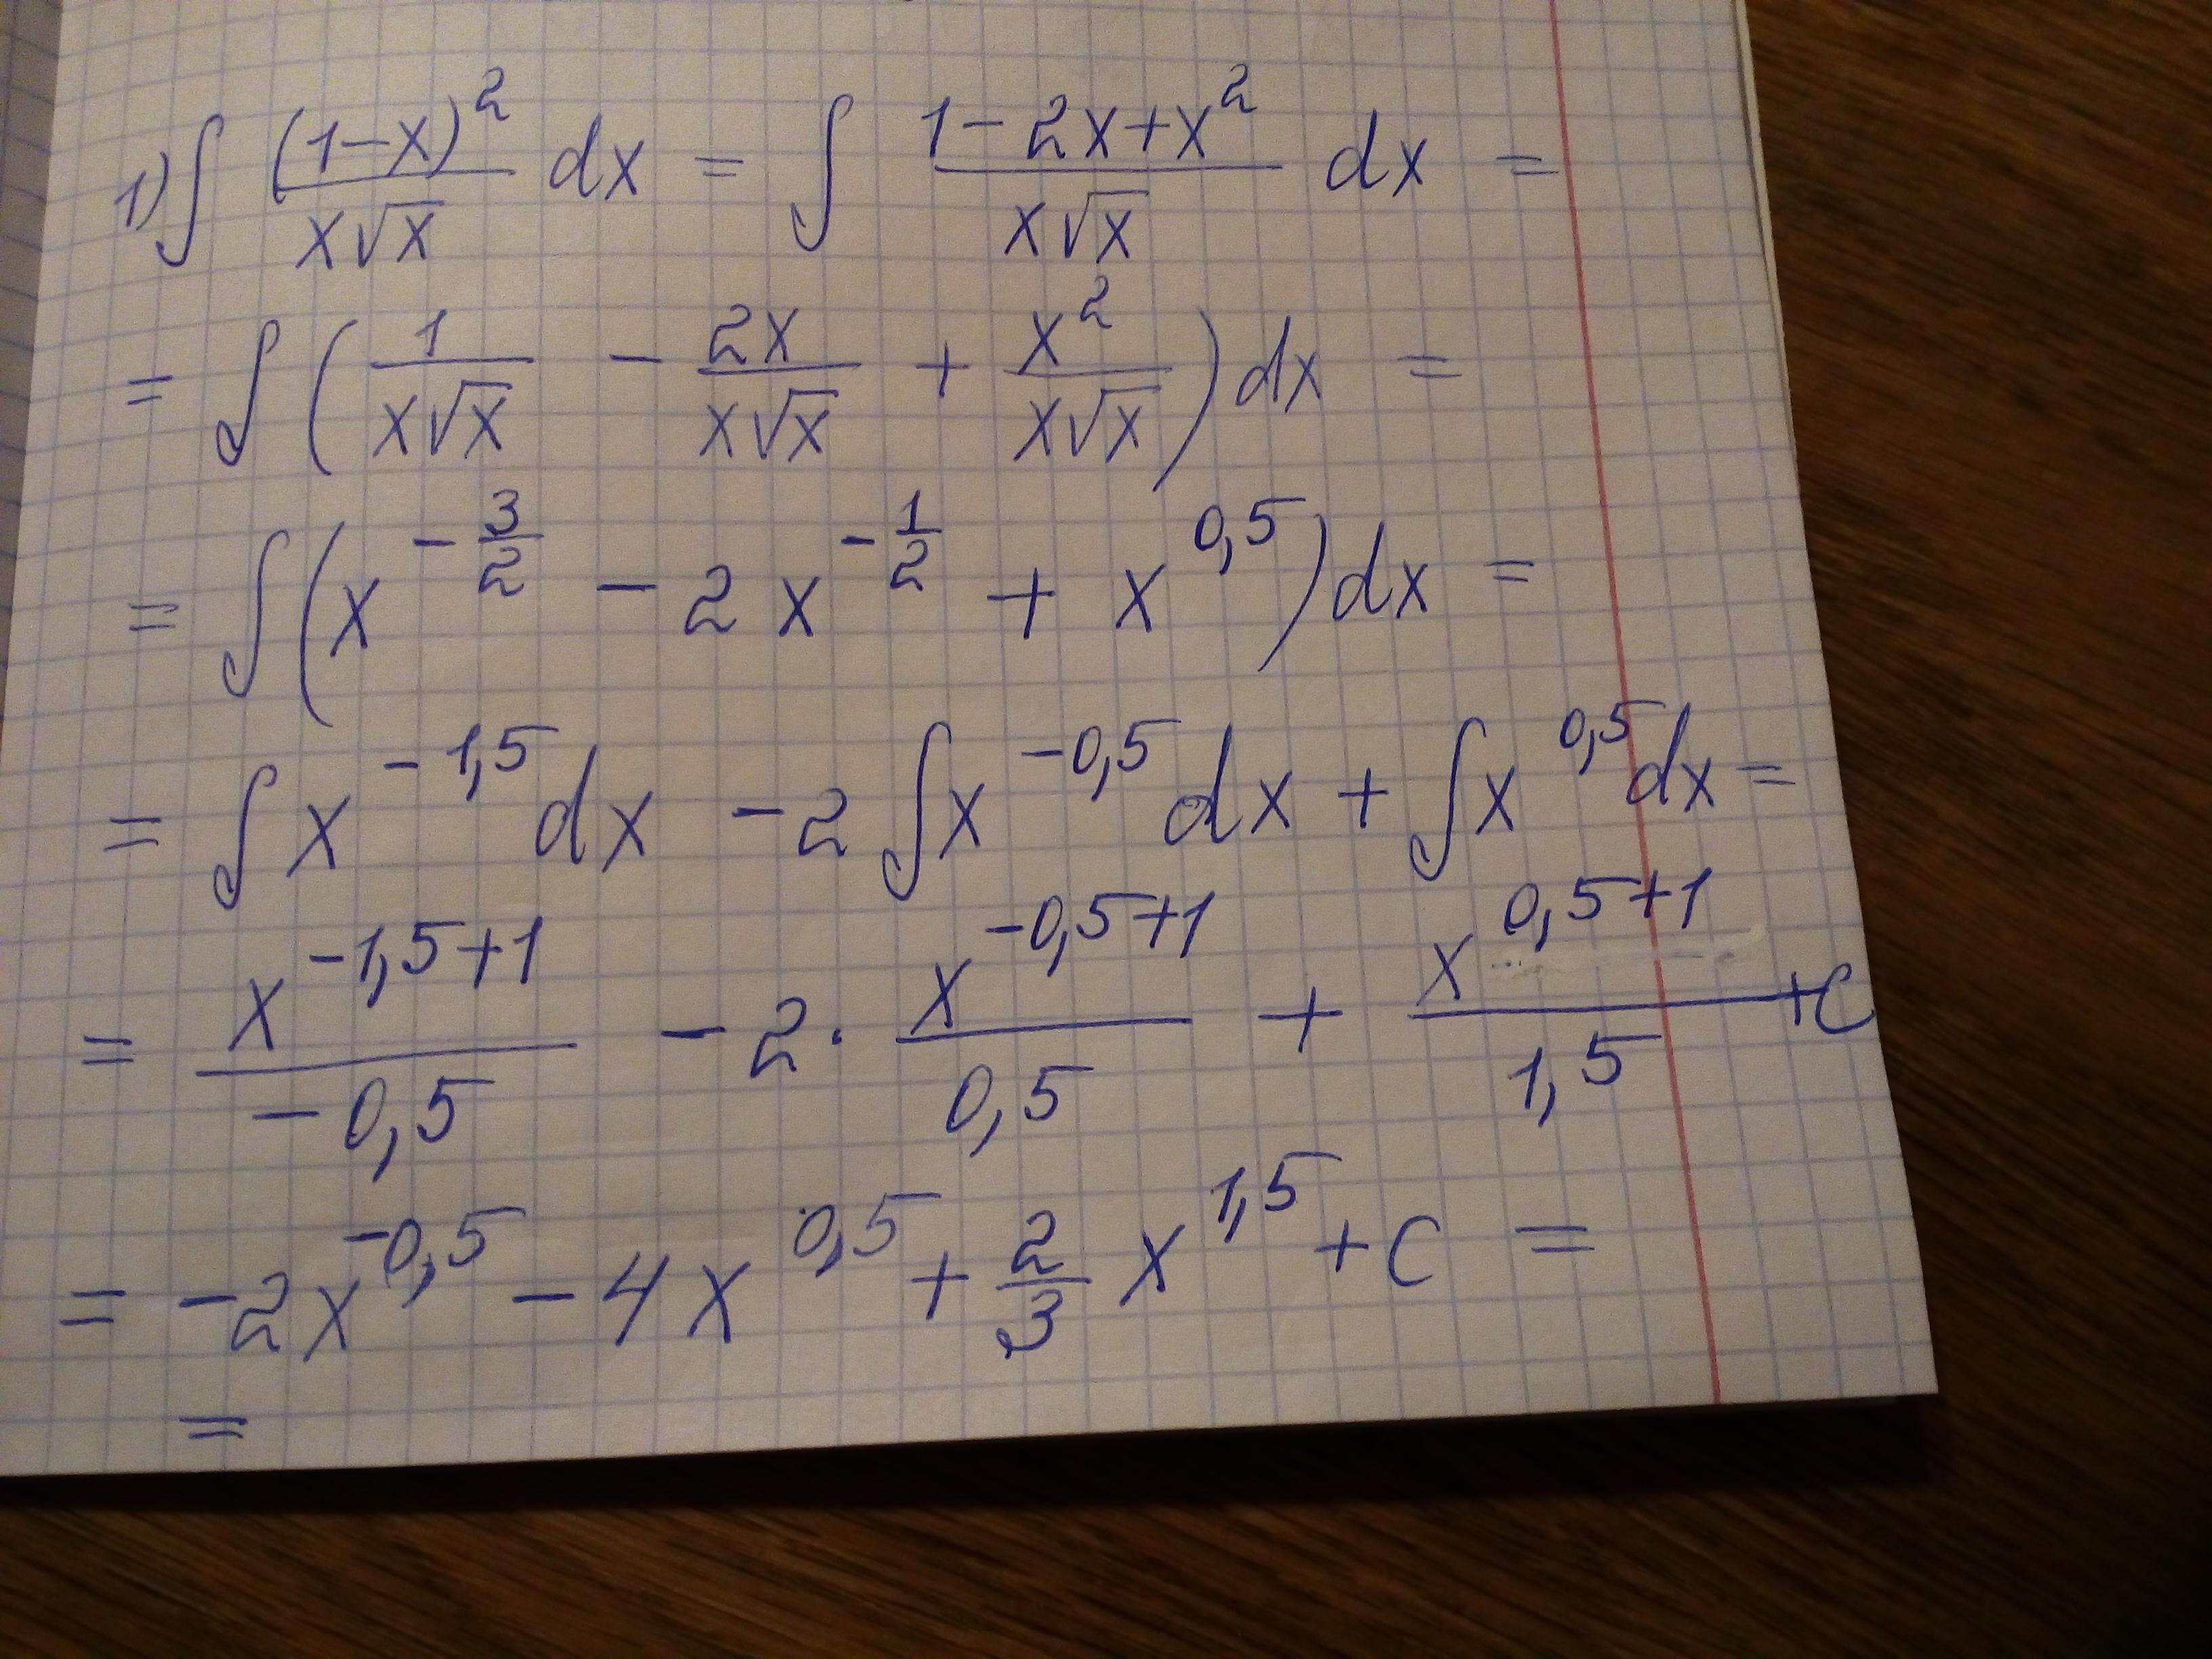 1) ∫ (1-x)²/(x√x) dx = ∫ (1-2x+x²)/(x√x) dx =
= ∫ (1/(x√x) - 2x/(x√x) + x²/(x√x)) dx =
= ∫ (x^(-3/2) - 2x^(-1/2) + x^(0,5)) dx =
= ∫ x^(-1,5) dx - 2 ∫ x^(-0,5) dx + ∫ x^(0,5) dx =
= x^(-1,5+1)/(-0,5) - 2 · x^(-0,5+1)/(0,5) + x^(0,5+1)/(1,5) + C
= -2x^(-0,5) - 4x^(0,5) + 2/3 x^(1,5) + C =
=